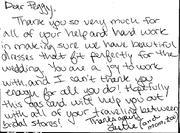 Dear Peggy,
Thank you so very much for
all of your help and hard work
in making sure we have beautiful
dresses that fit perfectly for the
wedding. You are a joy to work
with and I can't thank you
enough for all you do! Hopefully
this gas card will help you out
with all of your traveling between
bridal stores! Thanks again,
(and mom, too)